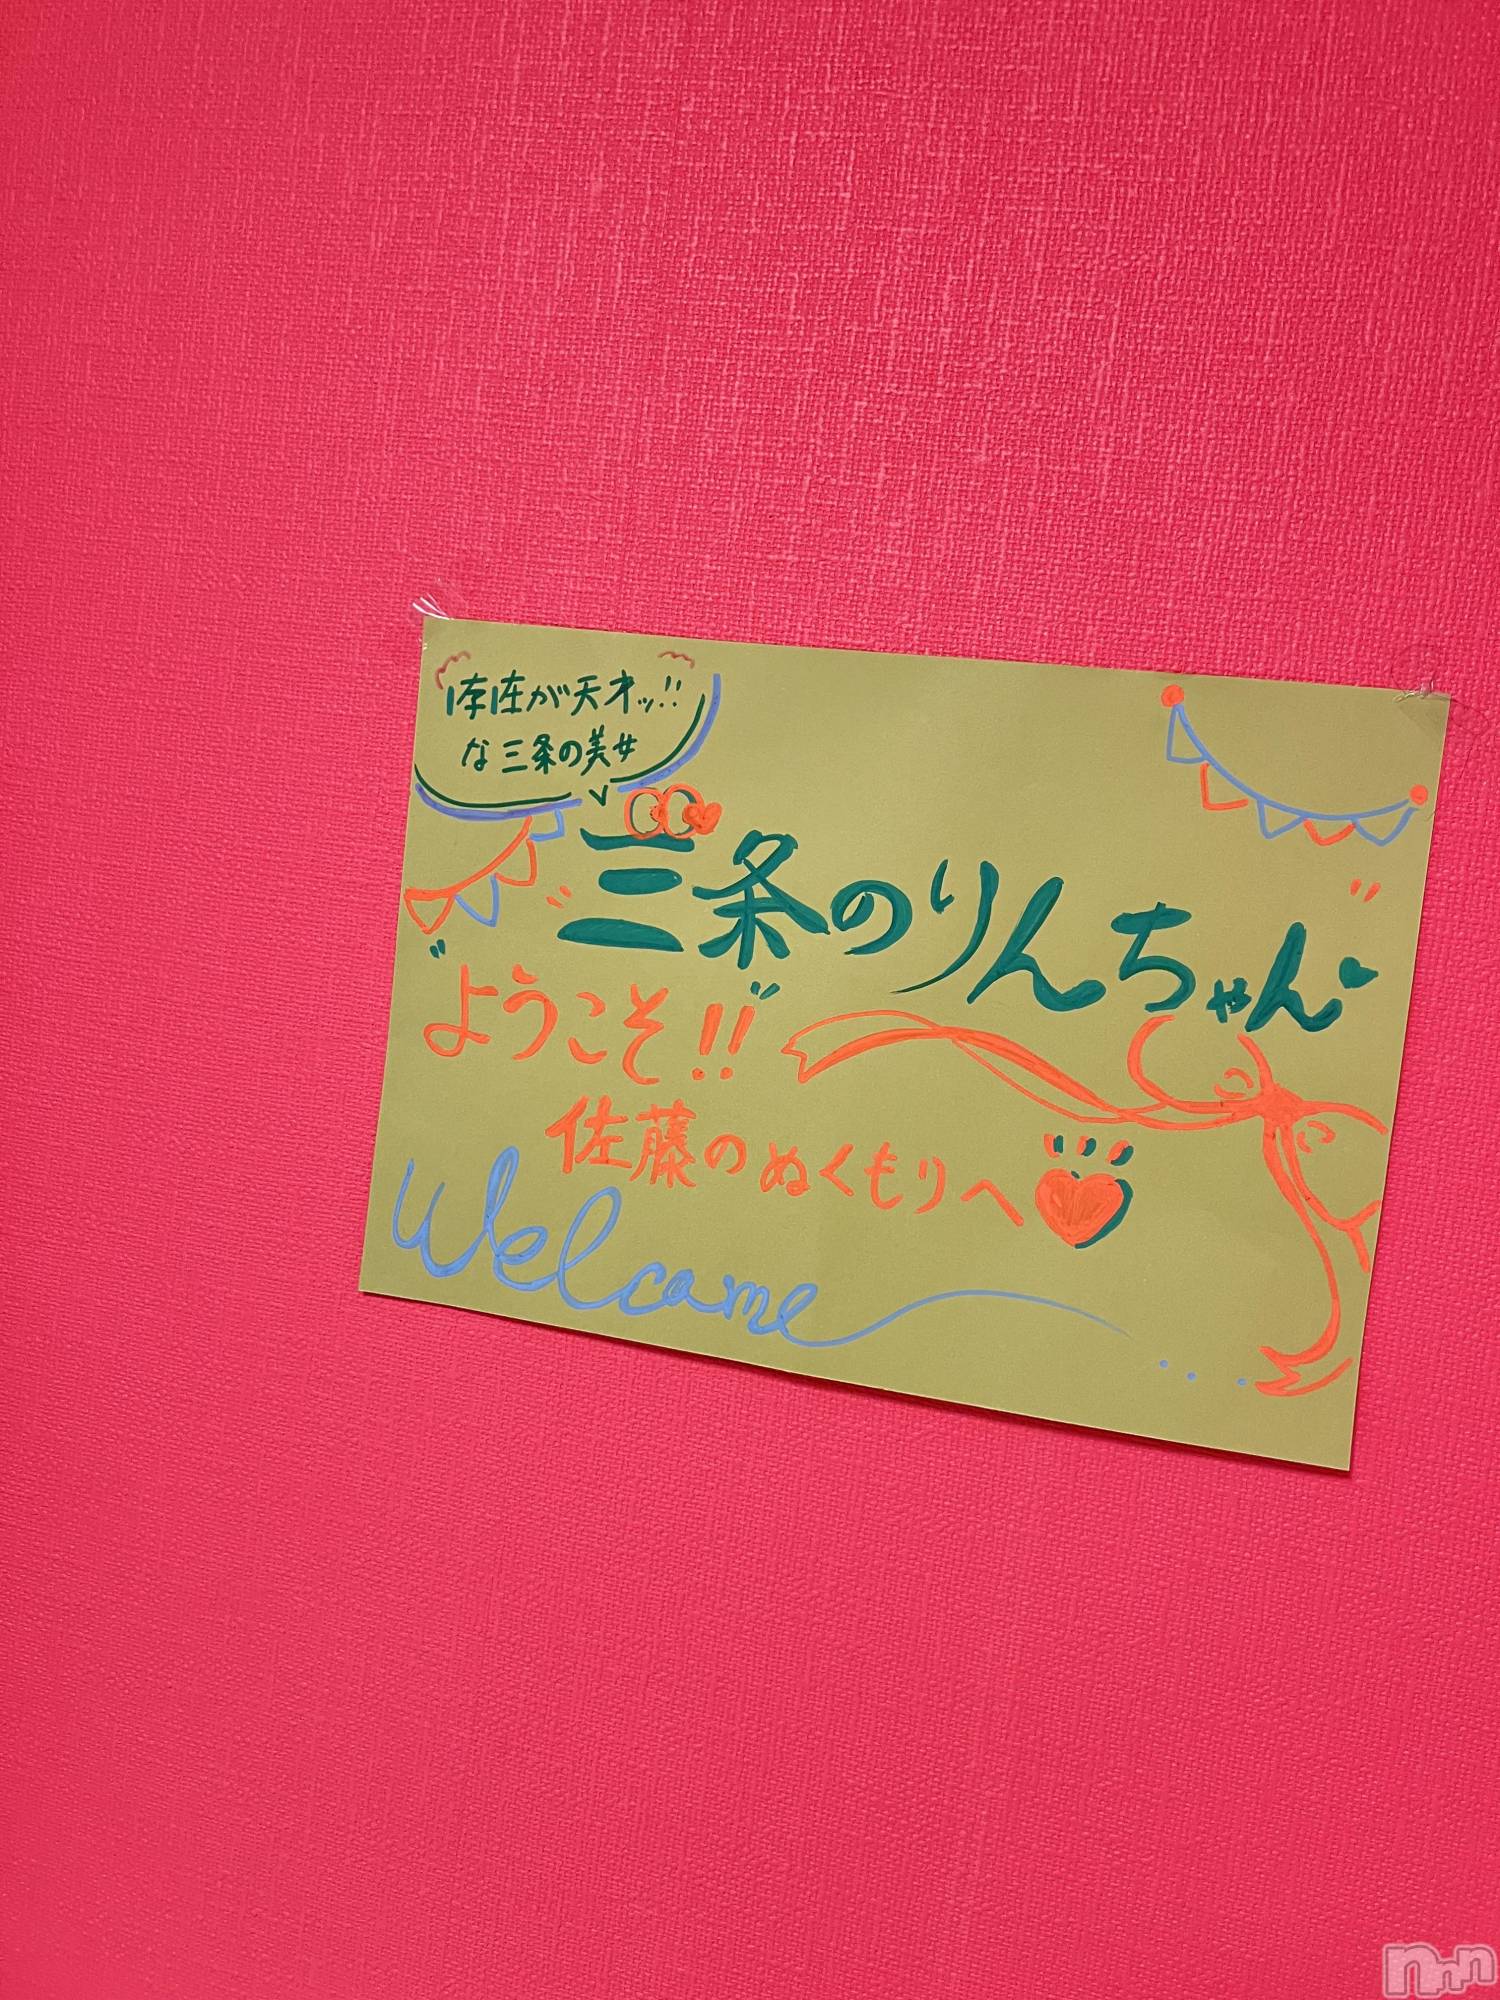 存在が天才ッ!!
な三条の美女
三条のりんちゃん
ようこそ!!
佐藤のぬくもりへ
Welcome
nnn